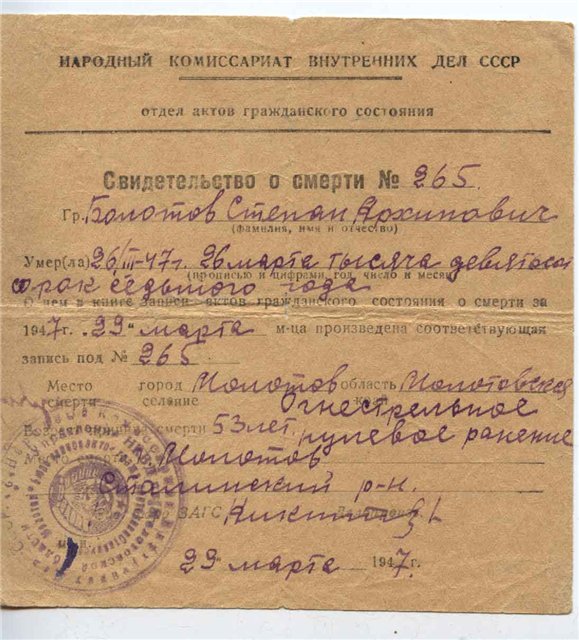 НАРОДНЫЙ КОМИССАРИАТ ВНУТРЕННИХ ДЕЛ СССР
отдел актов гражданского состояния
Свидетельство о смерти № 265.
Гр. Болотов Степан Архипович
(фамилия, имя и отчество)
Умер(ла) 26/III-47г. 26 марта тысяча девятьсот
(прописью и цифрами год, число и месяц)
сорок седьмого года
О чем в книге записи актов гражданского состояния о смерти за
1947г. 29 " марта м-ца произведена соответствующая
запись под № 265
Место город Молотов область Молотовская
смерти селение край
Огнестрельное
смерти 53 лет, пулевое ранение
Молотов
Сталинский р-н.
ЗАГС
29 " марта 1947г.